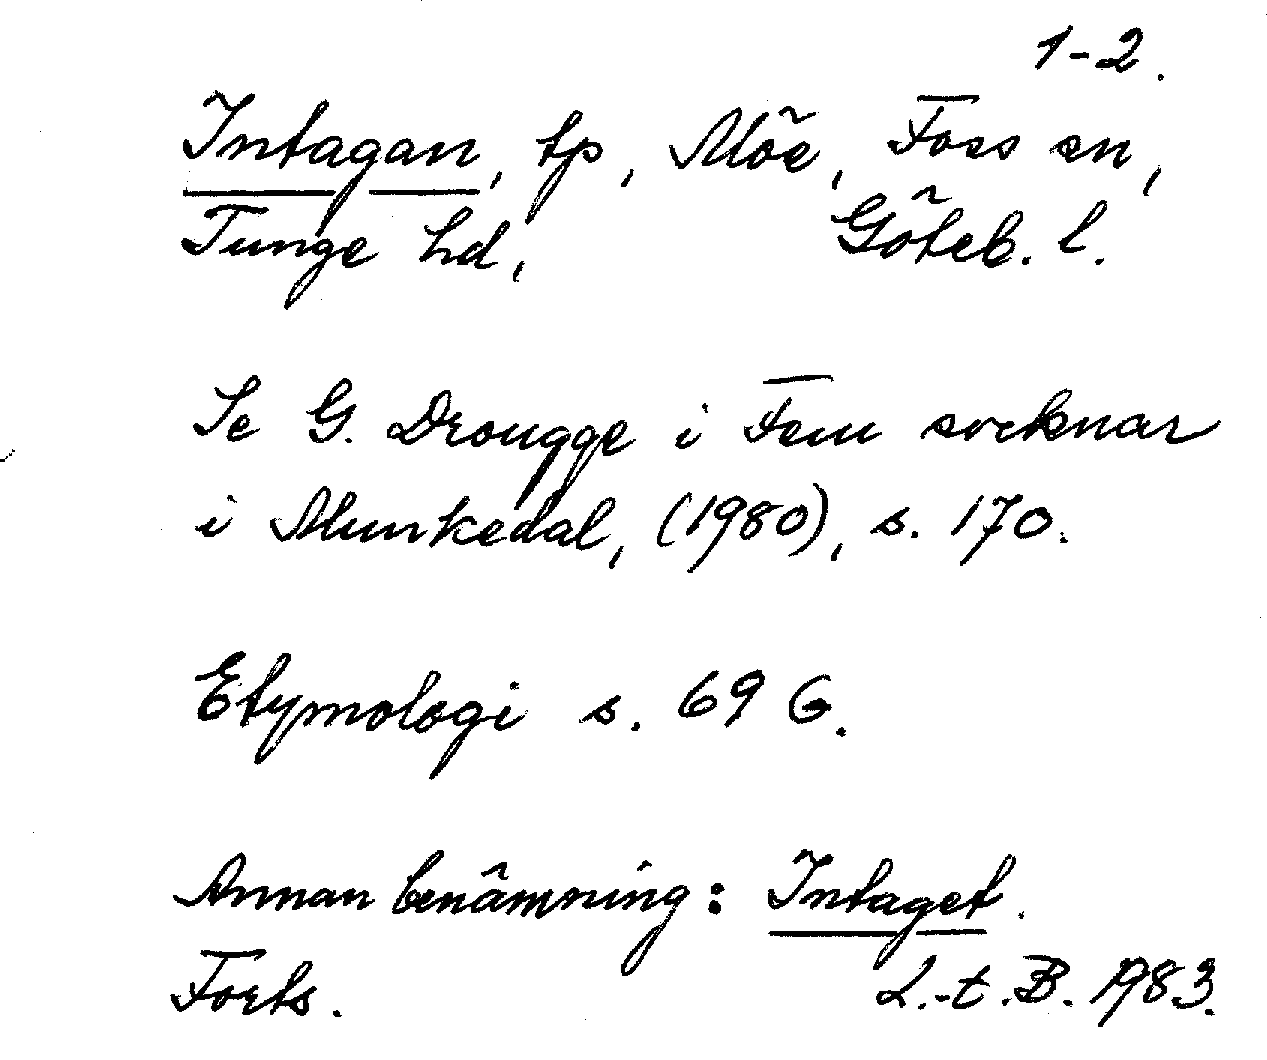 1-2.
Intagan, tp, Möe, Foss sn,
Tunge hd, Göteb. l.
Se G. Drougge i Fem socknar
i Munkedal, (1980), s. 170.
Etymologi s. 69 G.
Annan benämning: Intaget.
Forts. L.-t. B. 1983.